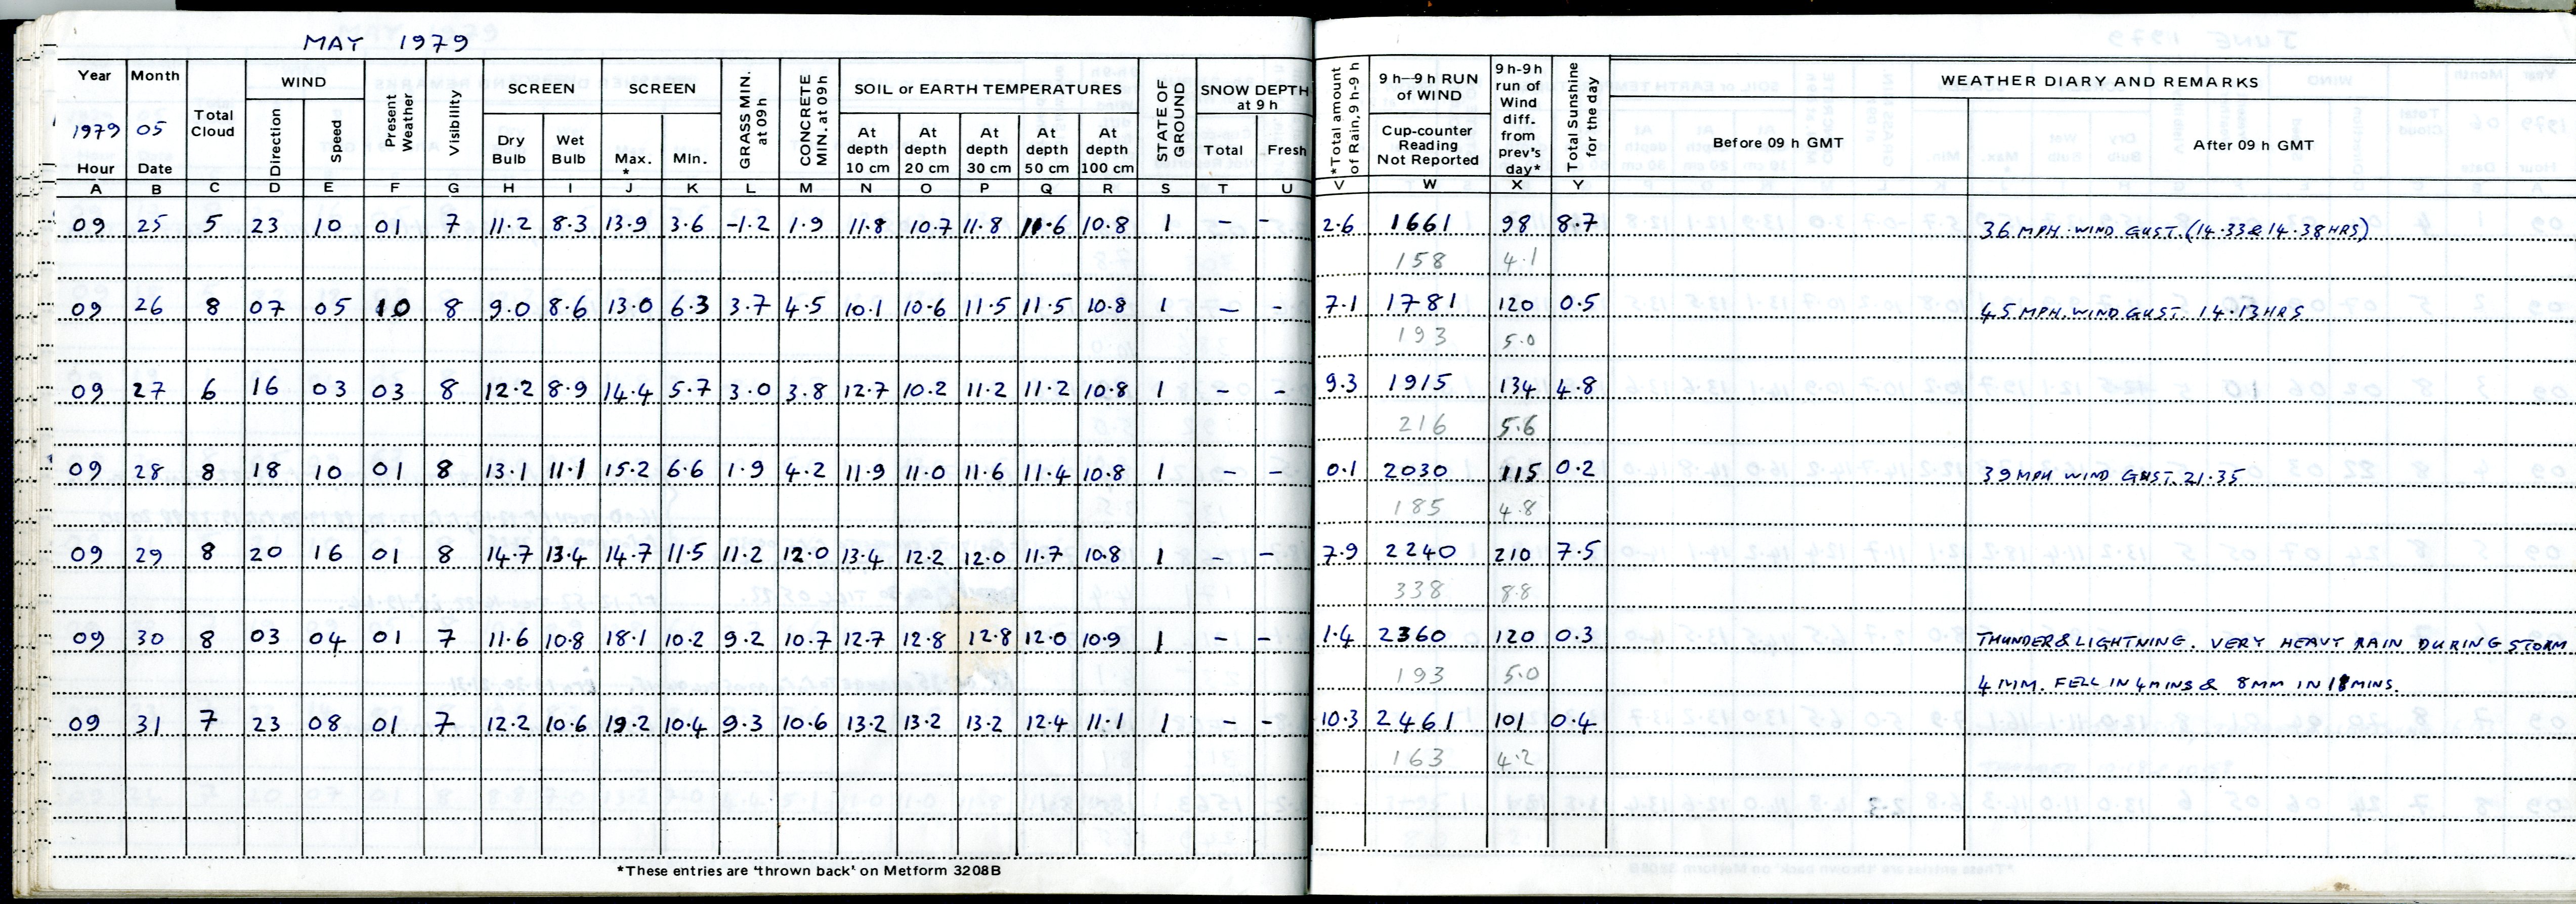 MAY 1979
Year Month Total Cloud WIND Present Weather Visibility SCREEN SCREEN GRASS MIN. at 09h CONCRETE MIN. at 09h SOIL or EARTH TEMPERATURES STATE OF GROUND SNOW DEPTH at 9 h *Total amount of Rain, 9 h-9 h 9 h—9 h RUN of WIND 9 h-9 h run of Wind diff. from prev's day* Total Sunshine for the day WEATHER DIARY AND REMARKS
1979 05 Direction Speed Dry Bulb Wet Bulb Max. * Min. At depth 10 cm At depth 20 cm At depth 30 cm At depth 50 cm At depth 100 cm Total Fresh Cup-counter Reading Not Reported Before 09 h GMT After 09 h GMT
Hour Date
A B C D E F G H I J K L M N O P Q R S T U V W X Y
09 25 5 23 10 01 7 11.2 8.3 13.9 3.6 -1.2 1.9 11.8 10.7 11.8 11.6 10.8 1 - - 2.6 1661 98 8.7 36 MPH. WIND GUST. (14.33 & 14.38 HRS)
158 4.1
09 26 8 07 05 10 8 9.0 8.6 13.0 6.3 3.7 4.5 10.1 10.6 11.5 11.5 10.8 1 - - 7.1 1781 120 0.5 45 MPH. WIND GUST. 14.13 HRS
193 5.0
09 27 6 16 03 03 8 12.2 8.9 14.4 5.7 3.0 3.8 12.7 10.2 11.2 11.2 10.8 1 - - 9.3 1915 134 4.8
216 5.6
09 28 8 18 10 01 8 13.1 11.1 15.2 6.6 1.9 4.2 11.9 11.0 11.6 11.4 10.8 1 - - 0.1 2030 115 0.2 39 MPH WIND GUST. 21.35
185 4.8
09 29 8 20 16 01 8 14.7 13.4 14.7 11.5 11.2 12.0 13.4 12.2 12.0 11.7 10.8 1 - - 7.9 2240 210 7.5
338 8.8
09 30 8 03 04 01 7 11.6 10.8 18.1 10.2 9.2 10.7 12.7 12.8 12.8 12.0 10.9 1 - - 1.4 2360 120 0.3 THUNDER & LIGHTNING. VERY HEAVY RAIN DURING STORM
193 5.0 4 MM. FELL IN 4 MINS & 8 MM IN MINS.
09 31 7 23 08 01 7 12.2 10.6 19.2 10.4 9.3 10.6 13.2 13.2 13.2 12.4 11.1 1 - - 10.3 2461 101 0.4
163 4.2
*These entries are 'thrown back' on Metform 3208B